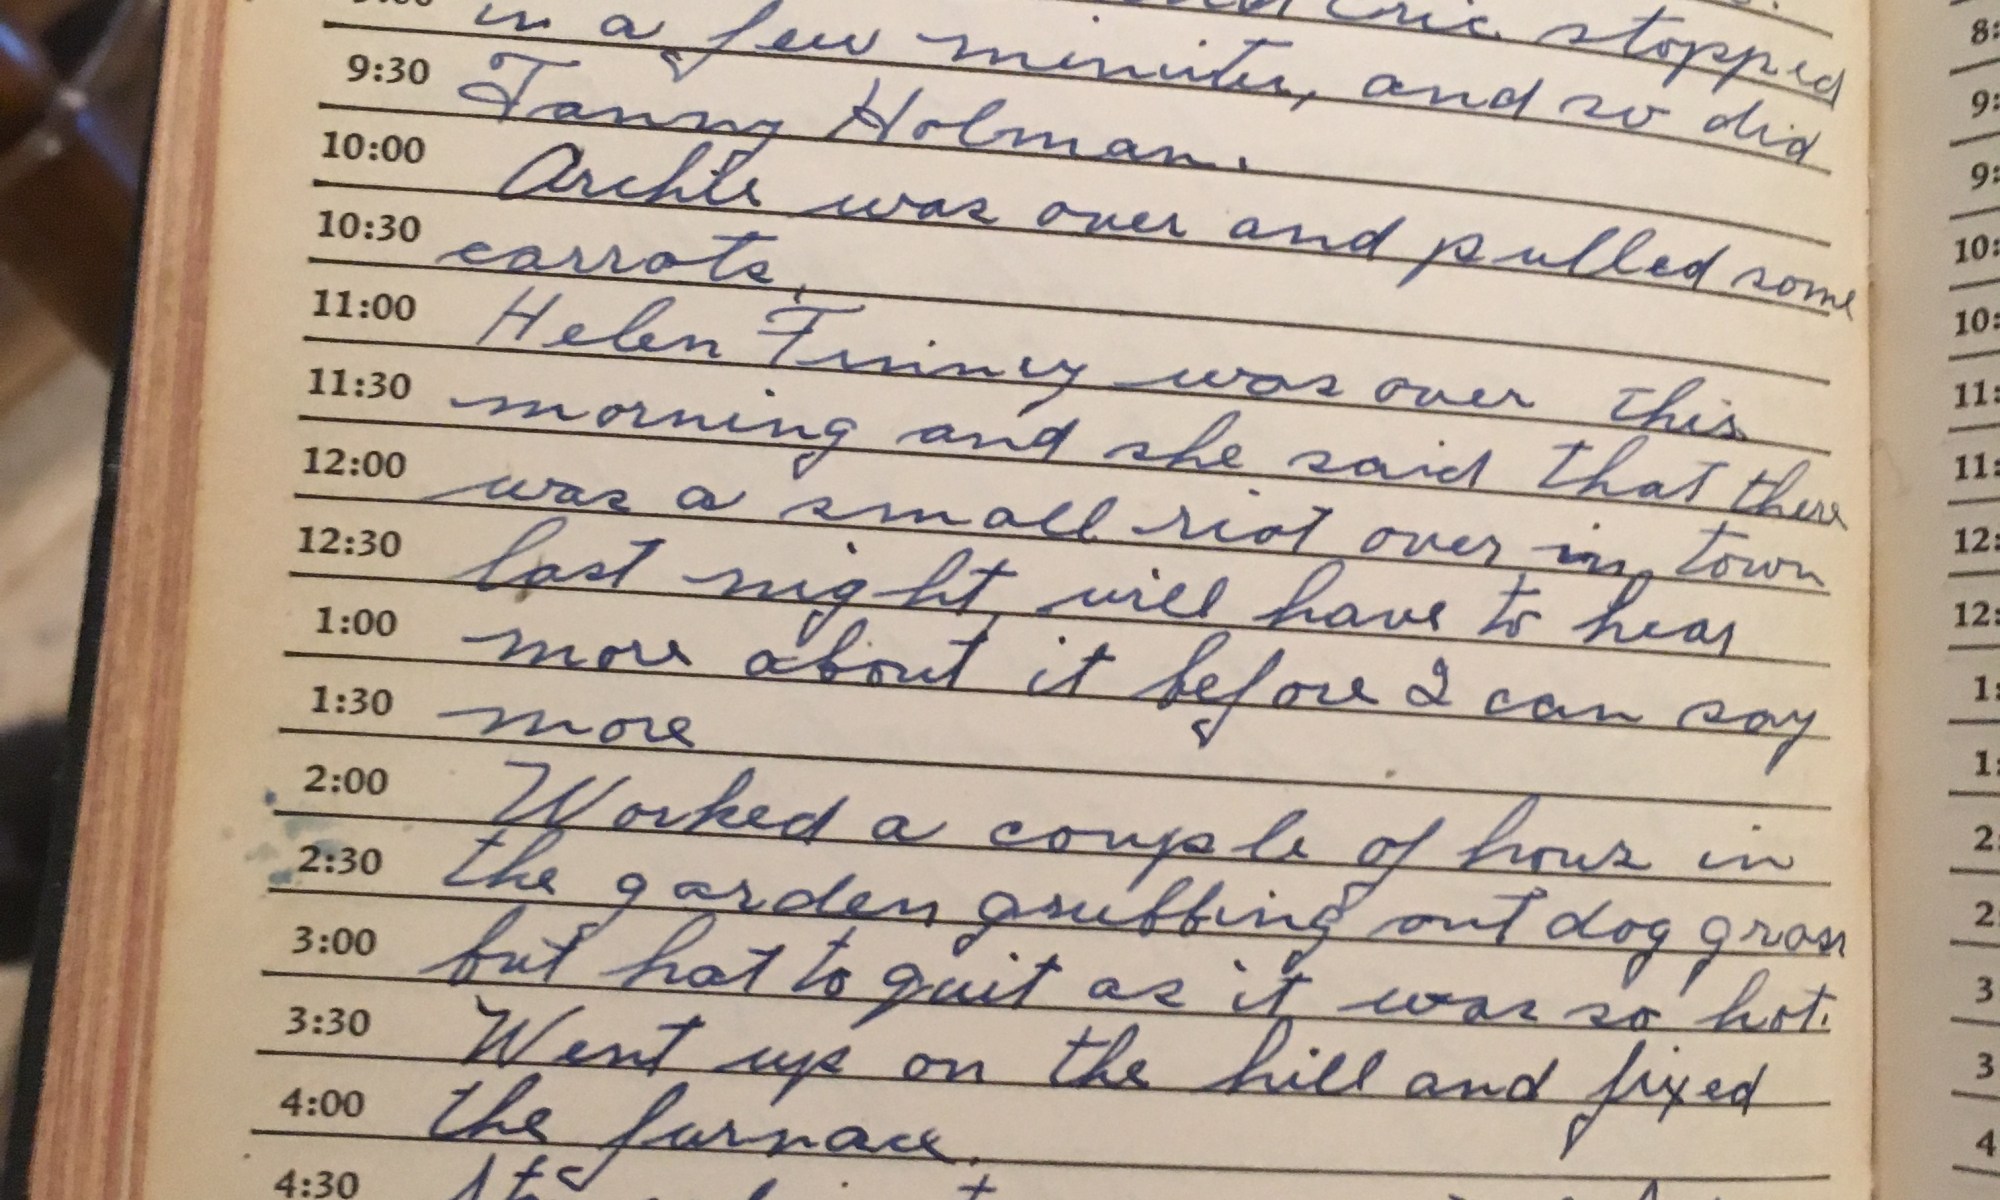 Eric stopped
9:30 in a few minutes, and so did
10:00 Fanny Holman.
10:30 Archie was over and pulled some
11:00 carrots.
11:30 Helen Finney was over this
12:00 morning and she said that there
12:30 was a small riot over in town
1:00 last night, will have to hear
1:30 more about it before I can say
2:00 more
2:30 Worked a couple of hours in
3:00 the garden grubbing out dog grass
3:30 but hat to quit as it was so hot.
4:00 Went up on the hill and fixed
4:30 the furnace.
8:
9:
9:
10:
10:
11:
11:
12:
12:
1:
1:
2:
2:
3
3
4